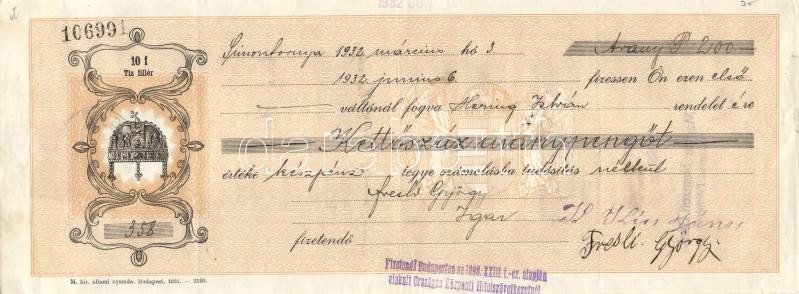 106991
10 f
Tiz fillér
358
Simontornya 1932. március hó 3.
Arany P 200
1932 junius 6. fizessen Ön ezen első
váltónál fogva Hering István rendeletére
Kettőszáz aranypengőt
értéke készpénz tegye számolásba tudósitás nélkül
György
Igar
János
fizetendő
György
Fizetendő Budapesten az 1898. XXIII t.-cz. alapján
alakult Országos Központi Hitelszövetkezetnél
M. kir. állami nyomda. Budapest, 1931. — 2160.